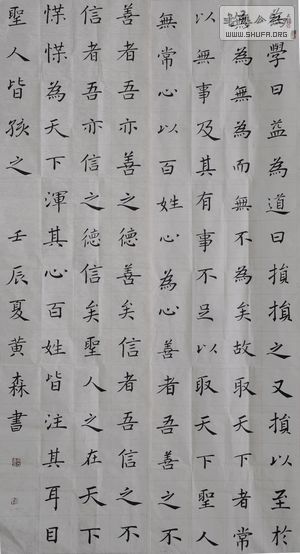 為學日益為道日損損之又損以至於
無為無為而無不為矣故取天下者常
以無事及其有事不足以取天下聖人
無常心以百姓心為心善者吾善之不
善者吾亦善之德善矣信者吾信之不
信者吾亦信之德信矣聖人之在天下
惵惵為天下渾其心百姓皆注其耳目
聖人皆孩之 壬辰夏黃森書
WWW.SHUFA.ORG